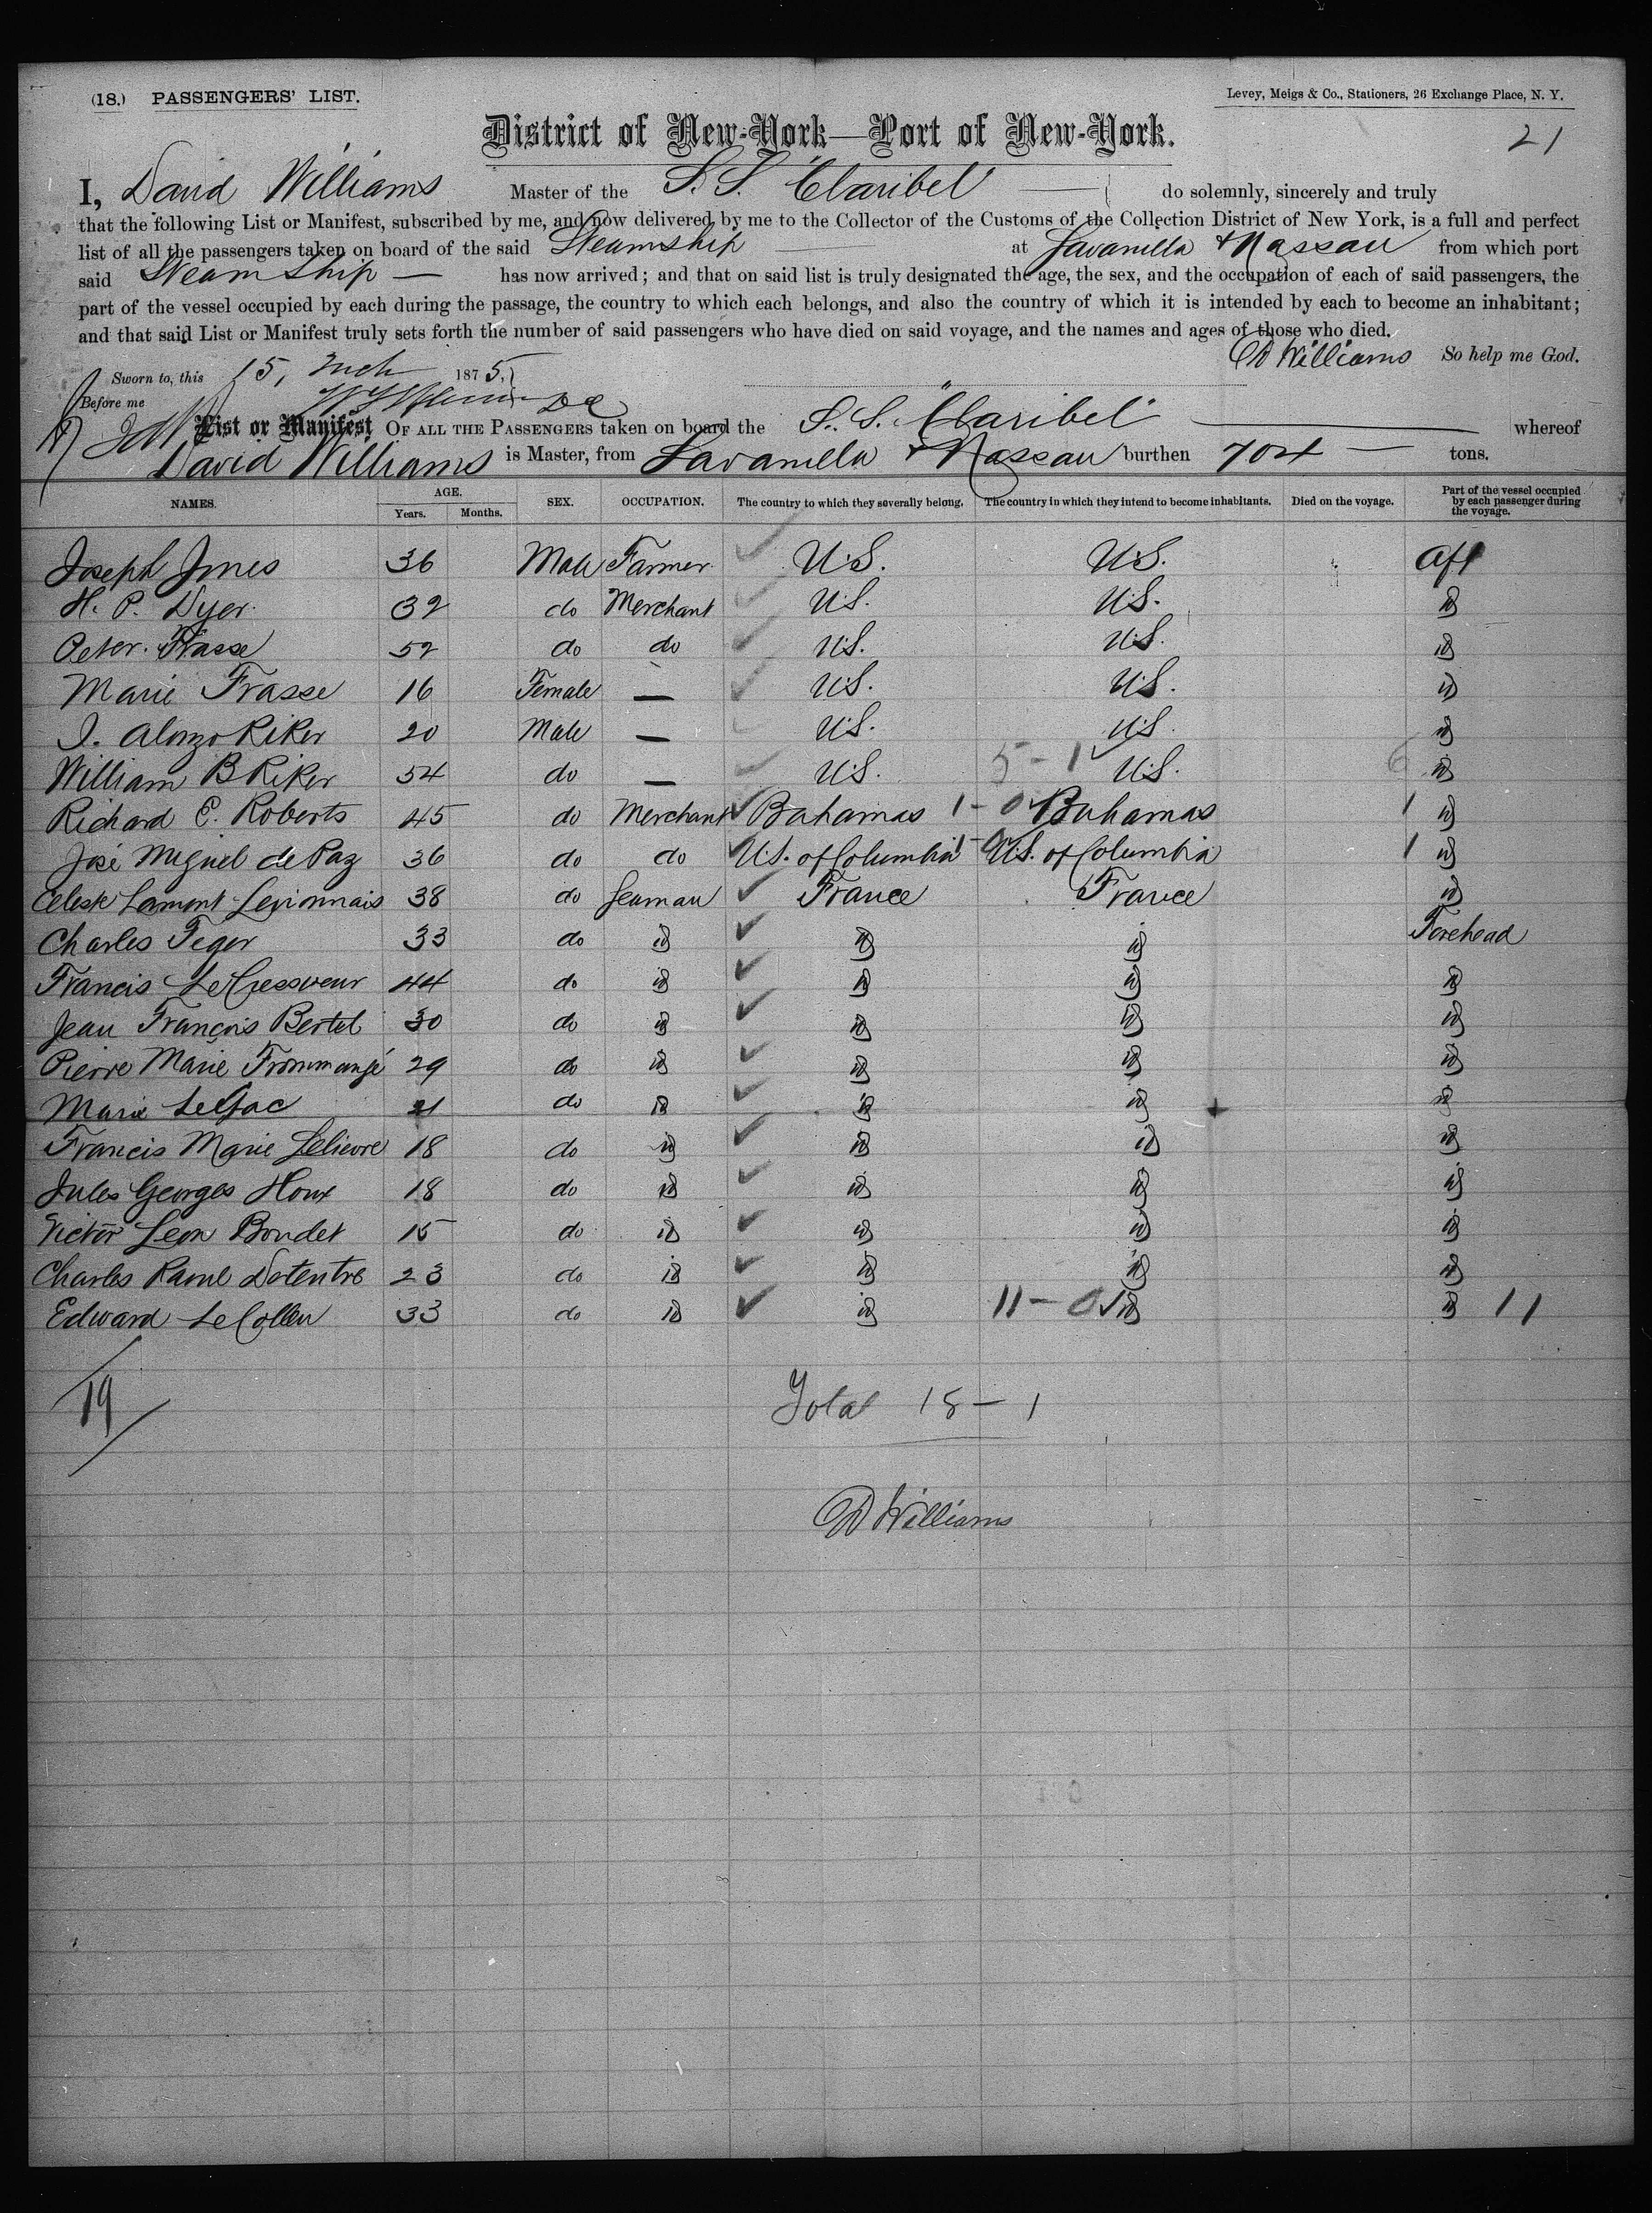 (18.) PASSENGERS' LIST.
Levey, Meigs & Co., Stationers, 26 Exchange Place, N. Y.
District of New-York—Port of New-York.
21
I, David Williams Master of the S. S. Claribel do solemnly, sincerely and truly
that the following List or Manifest, subscribed by me, and now delivered by me to the Collector of the Customs of the Collection District of New York, is a full and perfect
list of all the passengers taken on board of the said Steamship at Savanilla & Nassau from which port
said Steam Ship — has now arrived; and that on said list is truly designated the age, the sex, and the occupation of each of said passengers, the
part of the vessel occupied by each during the passage, the country to which each belongs, and also the country of which it is intended by each to become an inhabitant;
and that said List or Manifest truly sets forth the number of said passengers who have died on said voyage, and the names and ages of those who died.
D Williams So help me God.
Sworn to, this 15, Mch 1875,
Before me
List or Manifest OF ALL THE PASSENGERS taken on board the S. S. "Claribel" whereof
David Williams is Master, from Savanilla & Nassau burthen 704 — tons.
NAMES. AGE. Years. Months. SEX. OCCUPATION. The country to which they severally belong. The country in which they intend to become inhabitants. Died on the voyage. Part of the vessel occupied by each passenger during the voyage.
Joseph Jones 36 Male Farmer U.S. U.S. Aft
H. P. Dyer 32 do Merchant U.S. U.S. id
Peter Frasse 52 do do U.S. U.S. id
Marie Frasse 16 Female — U.S. U.S. id
J. Alonzo Riker 20 Male — U.S. U.S. id
William B Riker 54 do — U.S. 5-1 U.S. 6 id
Richard E. Roberts 45 do Merchant Bahamas 1-0 Bahamas 1 id
José Miguel de Paz 36 do do U.S. of Columbia 1-0 U.S. of Columbia 1 id
Celeste Lamont Levionnais 38 do Seaman France France id
Charles Feger 33 do id id id Forehead
Francis 44 do id id id id
Jean François Bertel 30 do id id id id
Pierre Marie Frommangé 29 do id id id id
Marie LeGac 21 do id id id id
Francis Marie Lelievre 18 do id id id id
Jules Georges Houx 18 do id id id id
Victor Leon Boudet 15 do id id id id
Charles Raoul Detentre 23 do id id id id
Edward LeCollen 33 do id id 11-0 id id 11
19
Total 18-1
D Williams